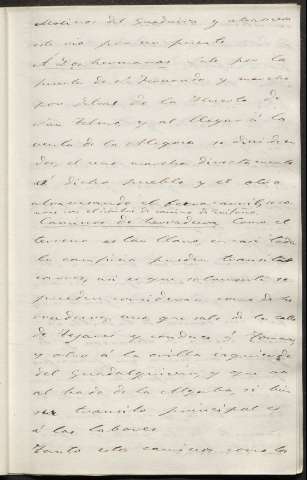 Molinos del Guadaira y atraviesa
este rio por un puente
A Dos hermanas. Sale por la
puerta de Sn Fernando y marcha
por detras de la Huerta de
San Telmo, y al llegar á la
venta de la Negra se divide en
dos, el uno marcha directamente
á dicho pueblo y el otro
atravesando el ferro-carril,
Caminos de herradura. Como el
terreno es tan llano, en casi toda
la campiña pueden transitar
carros, asi es que solamente se
pueden considerar como de he-
rradura, uno que sale de la calle
de Tejares y conduce á Tomares
y otro á la orilla izquierda
del Guadalquivir, y que va
al bado de la Algaba, si bien
su transito principal es
á las labores.
Tanto estos caminos como los